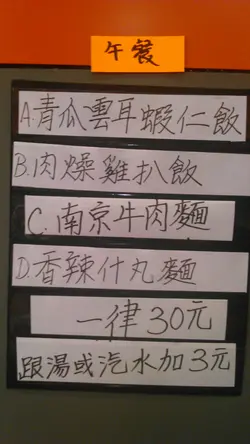 午餐
A.青瓜雲耳蝦仁飯
B.肉燥雞扒飯
C.南京牛肉麵
D.香辣什丸麵
一律30元
跟湯或汽水加3元